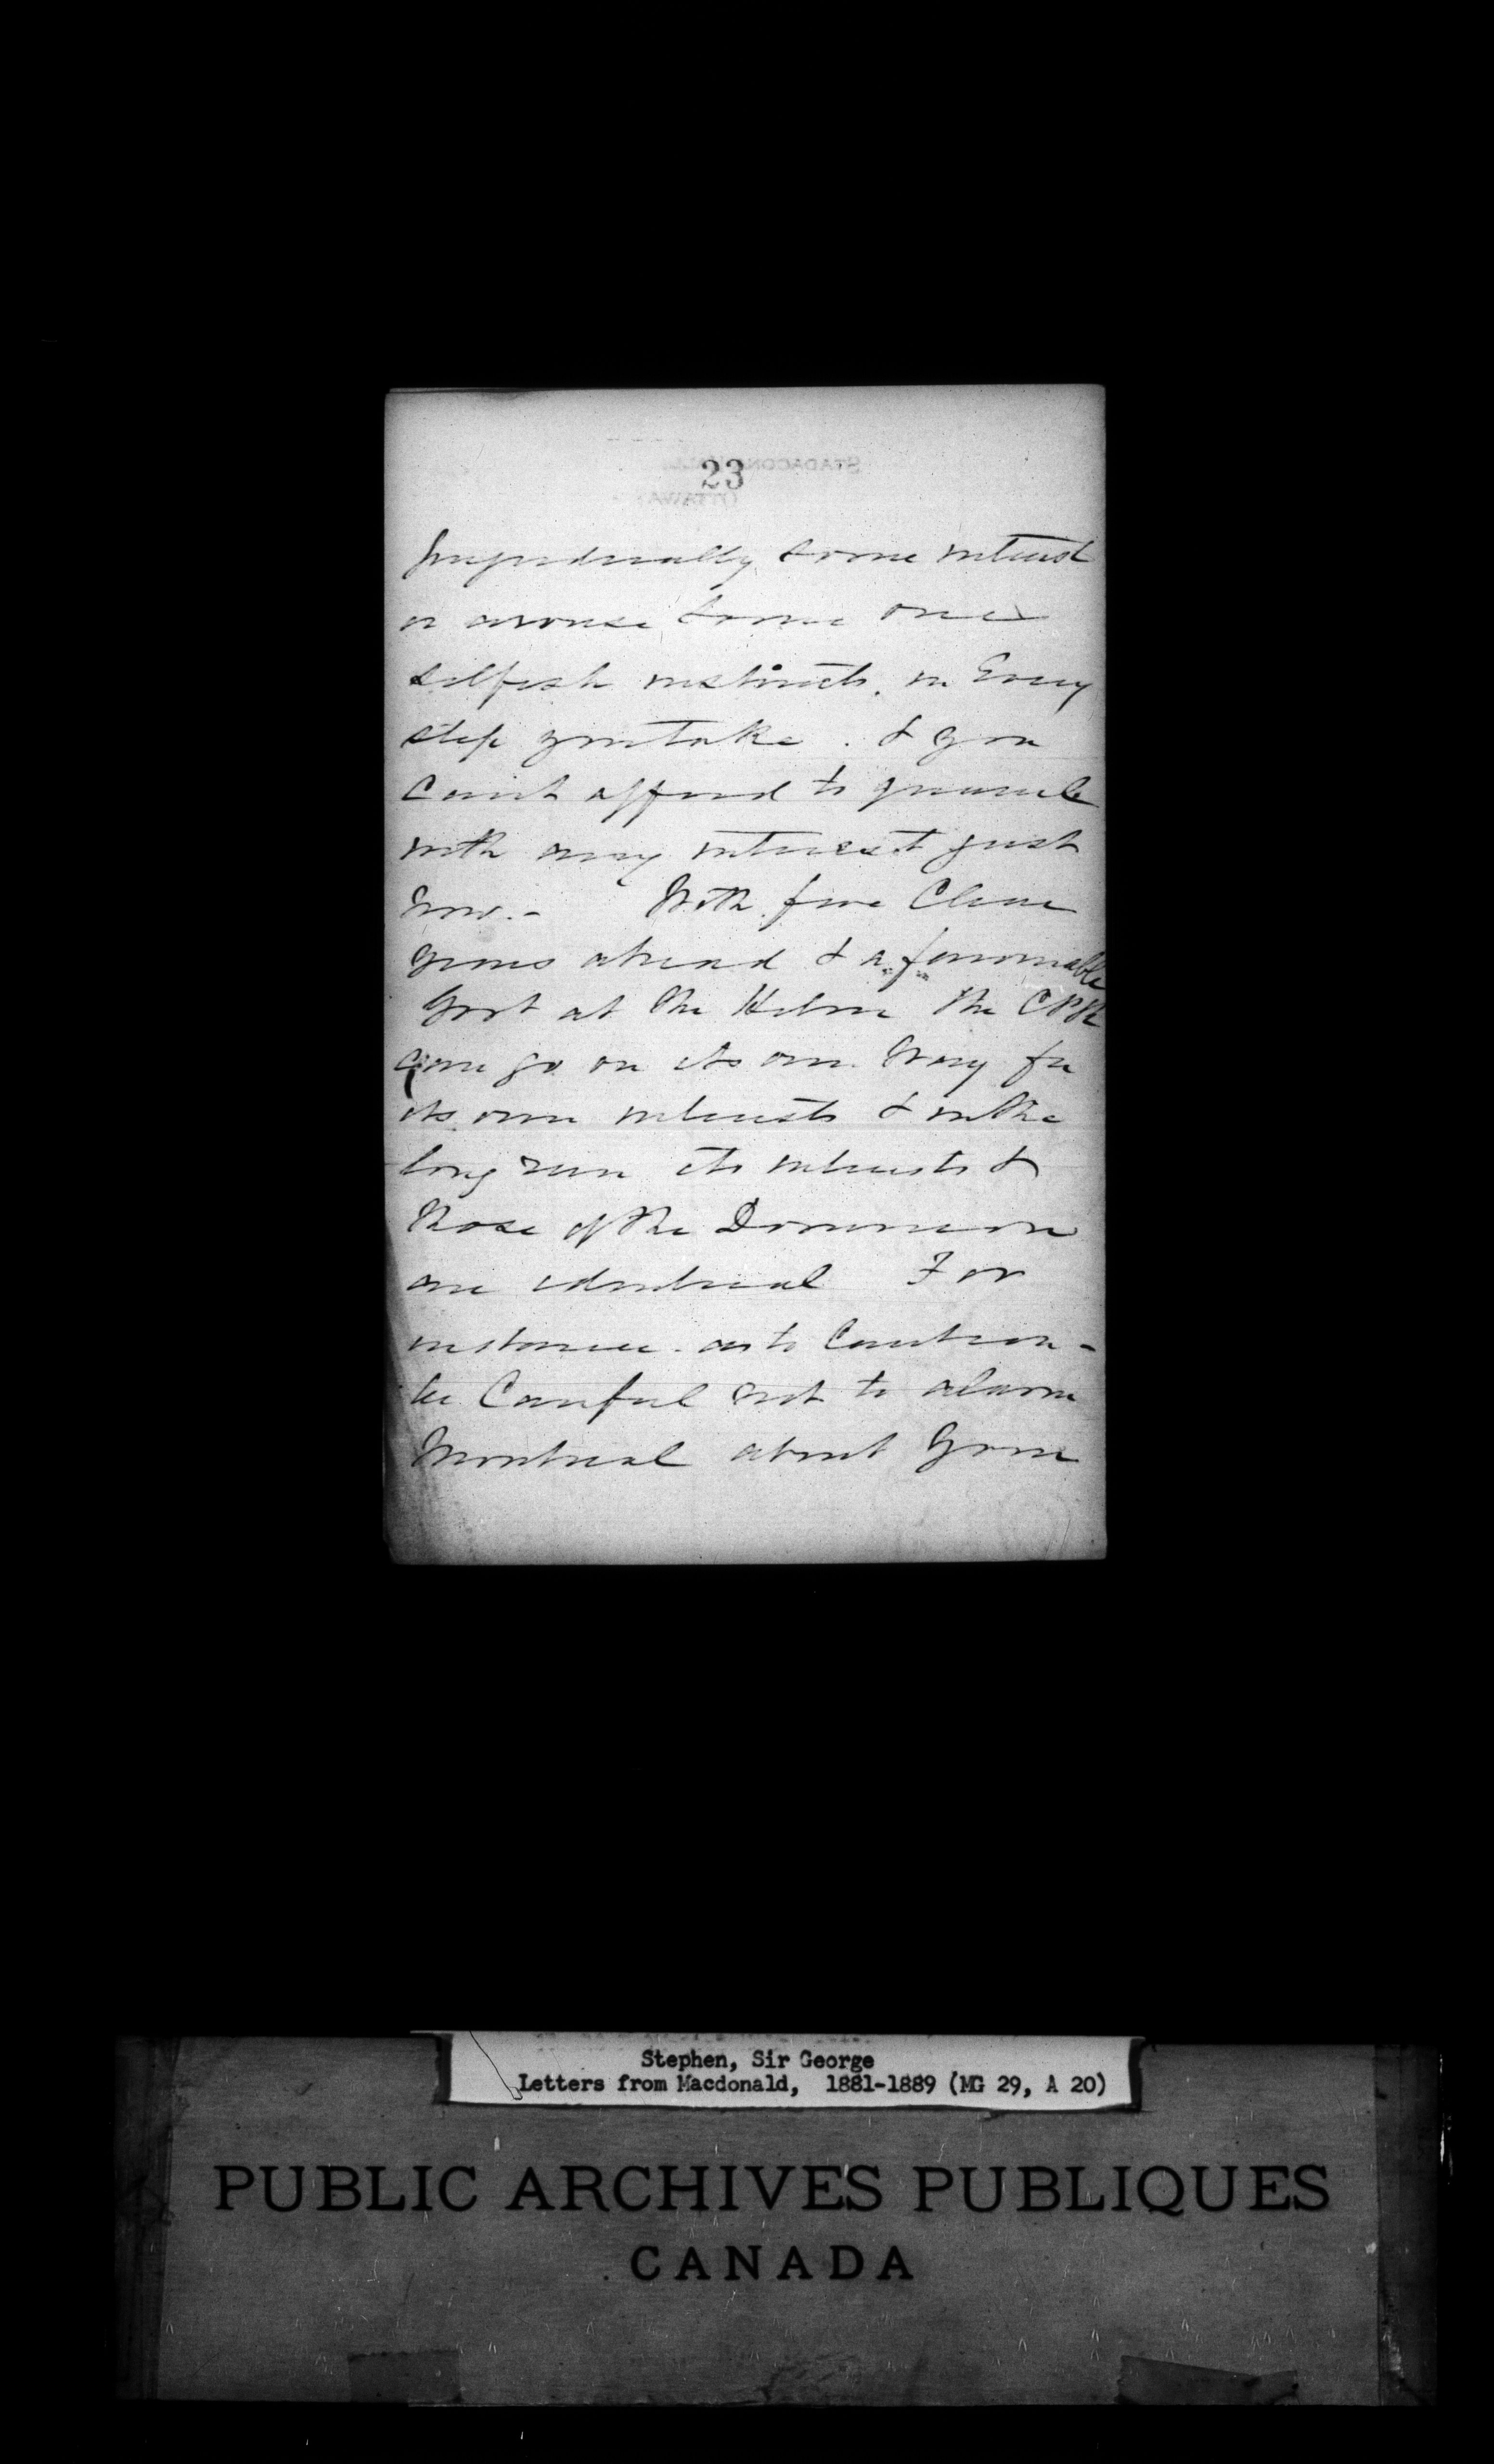 23
prejudicially some interest
or arouse some ones
selfish instincts. in Every
step you take. & you
cant afford to quarrel
with any interest just
now.- With five Clear
years ahead & a favourable
Govt at the Helm the CPR
can go on its own way for
its own interests & in the
long run its interests &
those of the Dominion
are identical For
instance. as to Caution -
be Careful not to alarm
Montreal about your
Stephen, Sir George
Letters from Macdonald, 1881-1889 (MG 29, A 20)
PUBLIC ARCHIVES PUBLIQUES
CANADA